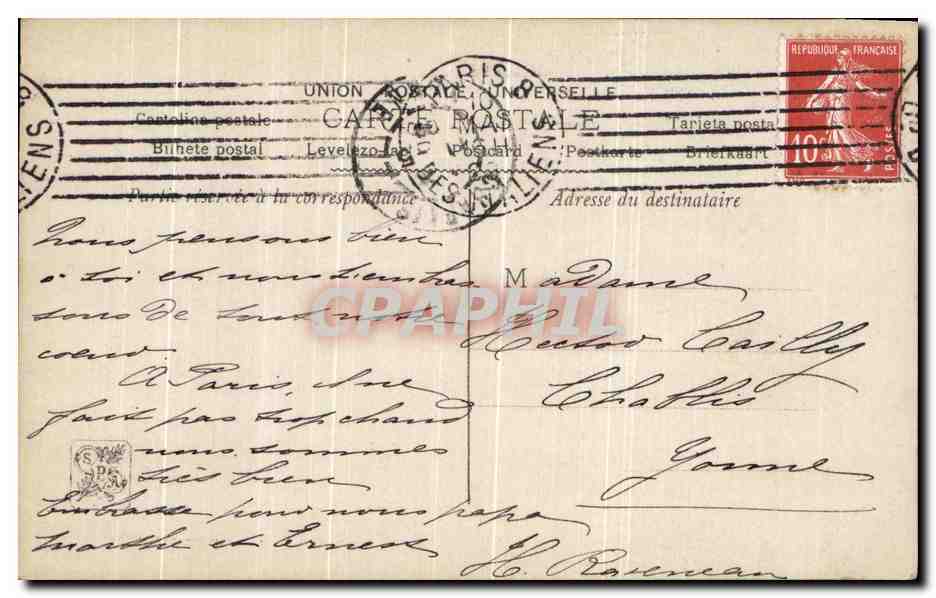 RÉPUBLIQUE FRANÇAISE
10c
POSTES
PARIS
UNION POSTALE UNIVERSELLE
CARTE POSTALE
Cartolina postale Tarjeta postal
Bilhete postal Levelezo-Lap Postcard Postkarte Briefkaart
Partie réservée à la correspondance
Adresse du destinataire
Nous pensons bien
à toi et nous t'embras
sons de tout notre
coeur.
A Paris, il ne
fait pas trop chaud
nous sommes
très bien
Embrasse pour nous papa
Marthe et Ernest
H. Raveneau
Madame
Hector Cailly
Chablis
Yonne
S. P. A.
CPAPHIL